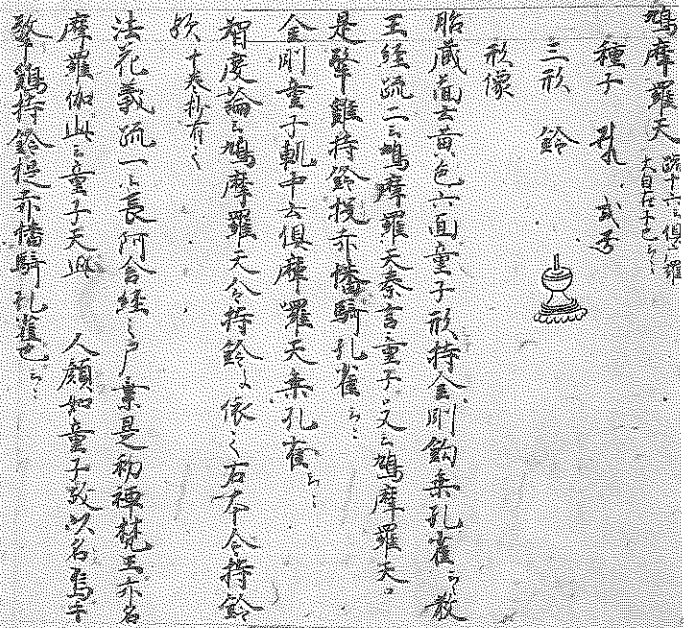 鳩摩羅天 疏十六云俱羅
大自在子也云々
種子
三形 鈴
形像
胎蔵面云黄色六面童子形持金剛鈎乗孔雀云々
王経疏二云鳩摩羅天秦言童子又云鳩摩羅天
是擎鶏持鈴捉赤幡騎孔雀云々
金剛童子軌中云俱摩囉天乗孔雀云々
智度論云鳩摩羅天令持鈴 依之右 令持鈴
歟
法花義疏一云長阿含経云尸棄是初禅梵王亦名
摩羅伽此云童子天此 人顔如童子故以名焉
擎鶏持鈴捉赤幡騎孔雀也云々